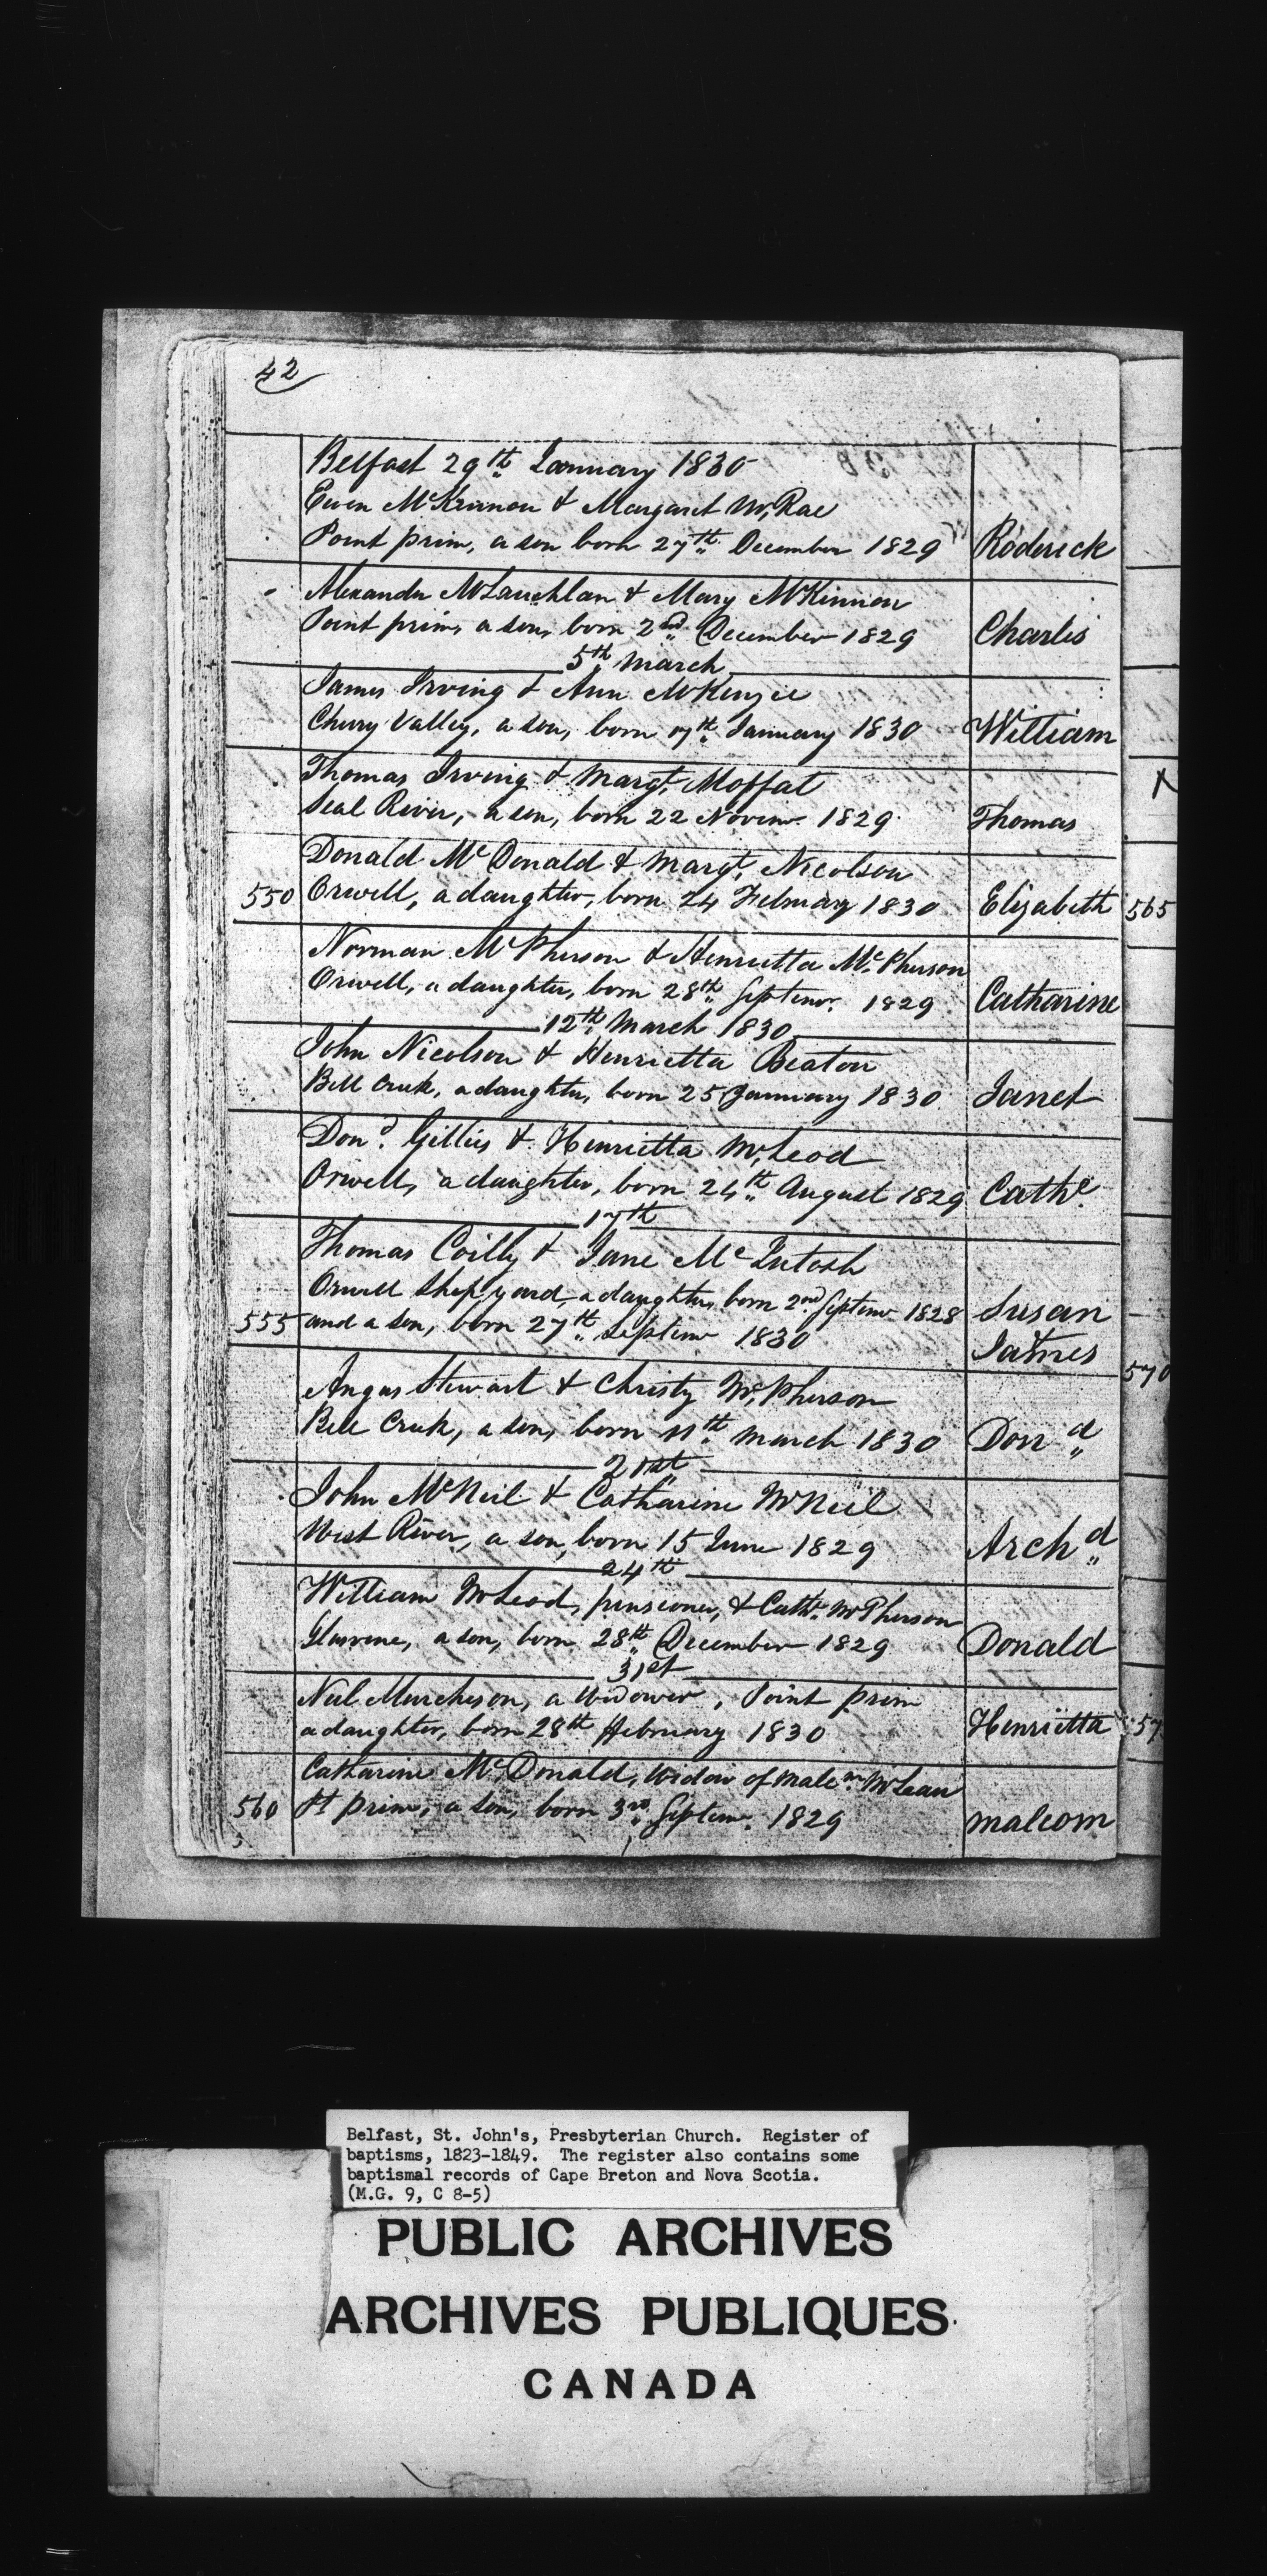 42
Belfast 29th January 1830
Ewen McKinnon & Margaret McRae
Point prim, a son born 27th December 1829 Roderick
Alexander McLauchlan & Mary McKinnon
Point prim, a son, born 2nd December 1829 Charles
5th March
James Irving & Ann McKenzie
Cherry Valley, a son, born 7th January 1830 William
Thomas Irving & Margt. Moffat
Seal River, a son, born 22 Novemr. 1829 Thomas
Donald McDonald & Margt. Nicolson
550 Orwell, a daughter, born 24 February 1830 Elizabeth 565
Norman McPherson & Henrietta McPherson
Orwell, a daughter, born 28th Septemr. 1829 Catharine
12th March 1830
John Nicolson & Henrietta Beaton
Bell Creek, a daughter, born 25 January 1830 Janet
Dond. Gillies & Henrietta McLeod
Orwell, a daughter, born 24th August 1829 Cathe
17th
Thomas Coilly & Jane McIntosh
Orwell Ship yard, a daughter, born 2nd Septemr 1828 Susan
555 and a son, born 27th Septemr 1830 &
James
570
Angus Stewart & Christy McPherson
Bell Creek, a son, born 11th March 1830 Dond
21st
John McNeil & Catharine McNeil
West River, a son, born 15 June 1829 Archd
24th
William McLeod, pensioner, & Cathe. McPherson
a son, born 28th December 1829 Donald
31st
Neil Murcheson, a Widower, Point prim
a daughter, born 28th February 1830 Henrietta 57
Catharine McDonald, Widow of Malcm. McLean
560 Pt prim, a son, born 3rd Septemr. 1829 Malcom
Belfast, St. John's, Presbyterian Church. Register of
baptisms, 1823-1849. The register also contains some
baptismal records of Cape Breton and Nova Scotia.
(M.G. 9, C 8-5)
PUBLIC ARCHIVES
ARCHIVES PUBLIQUES
CANADA